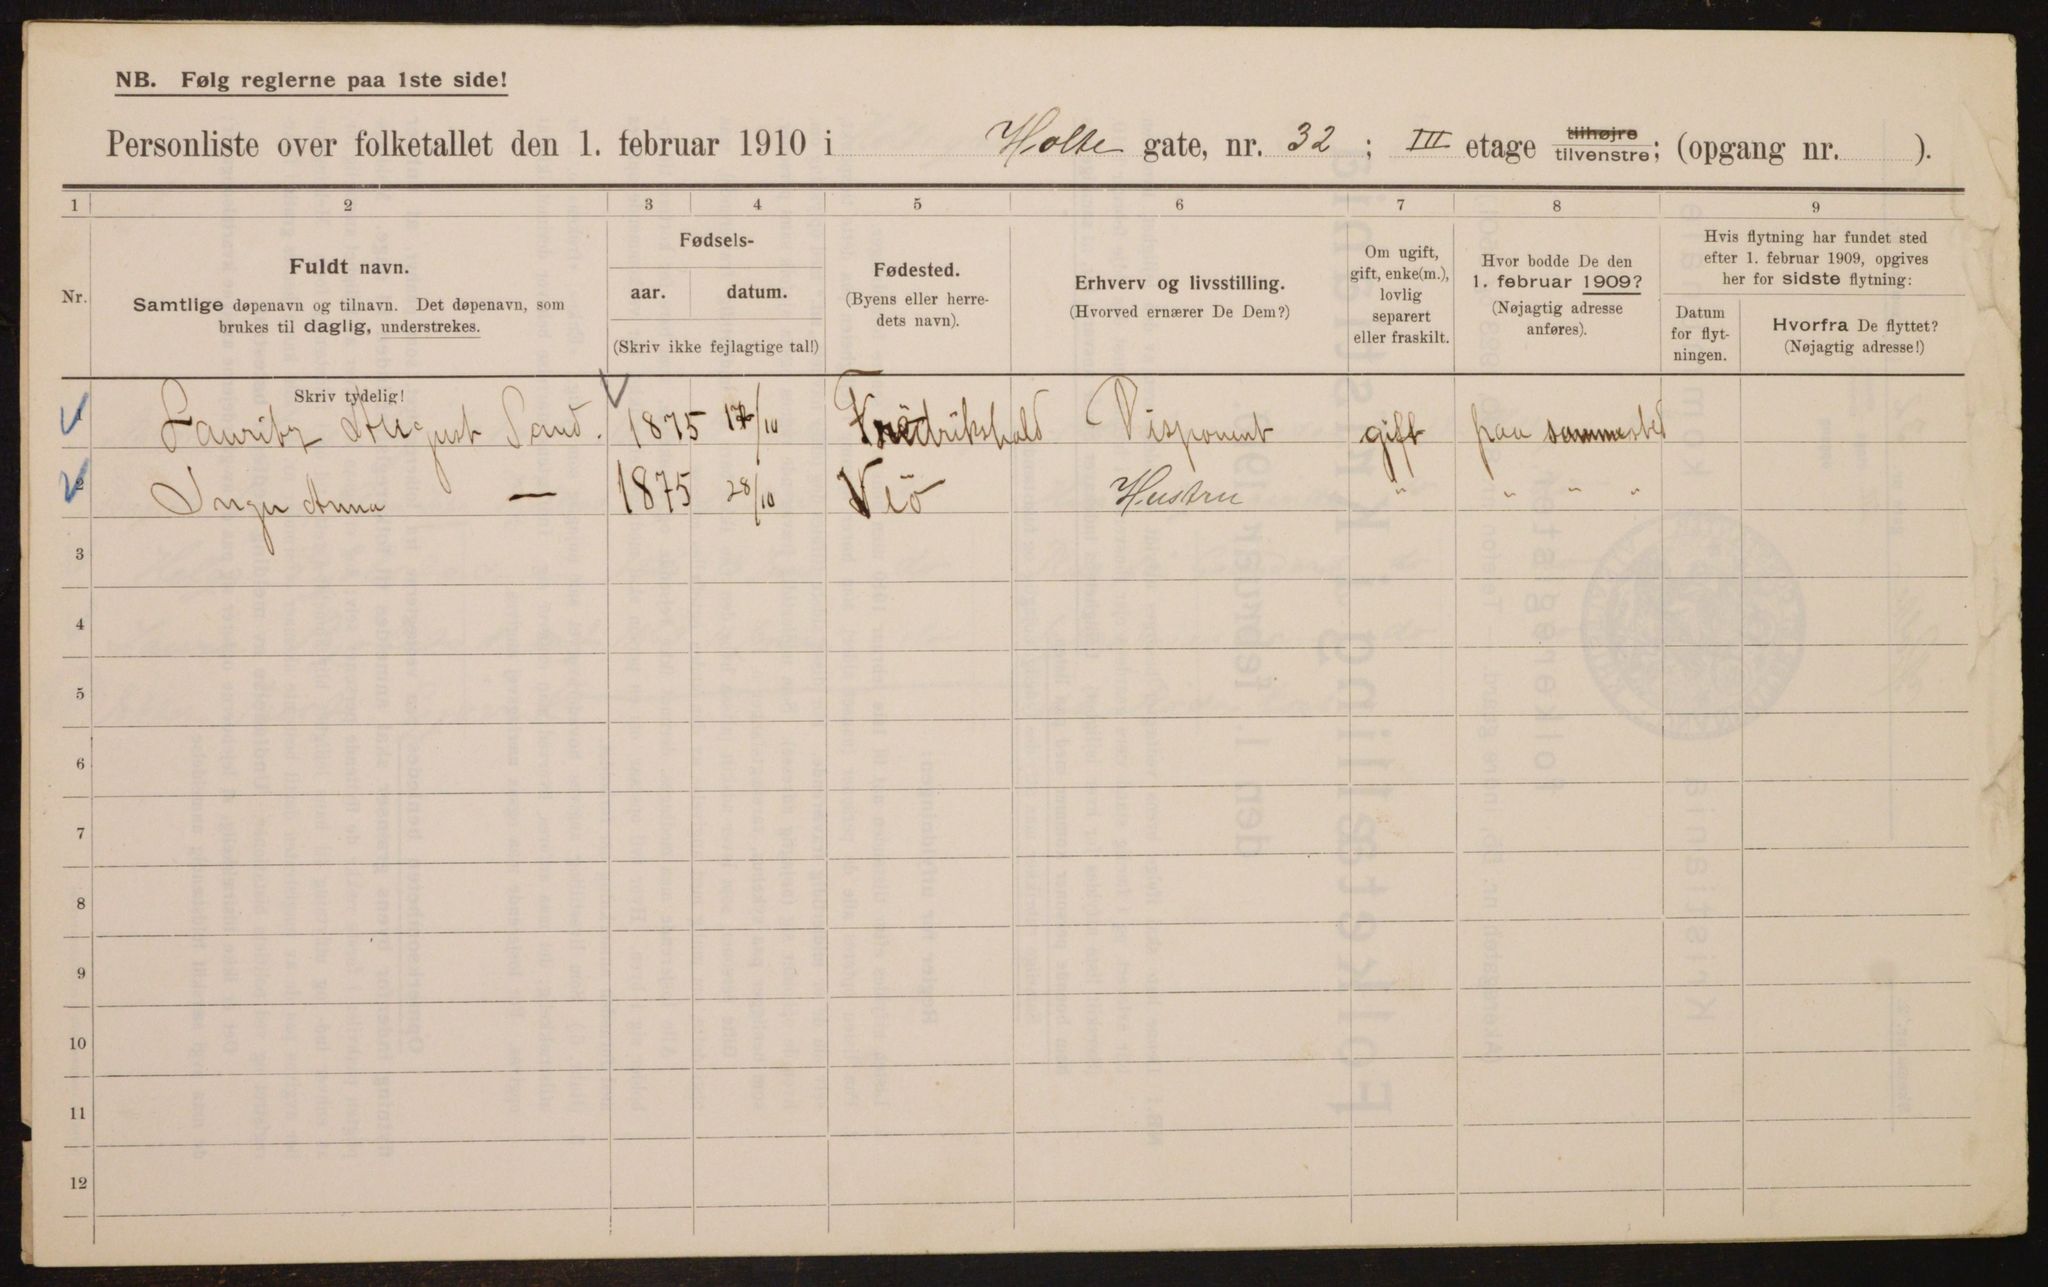 NB. Følg reglerne paa 1ste side!
Personliste over folketallet den 1. februar 1910 i Holte gate, nr. 32 ; III etage tilhøjre tilvenstre; (opgang nr. ).
1 2 3 4 5 6 7 8 9
Nr.
Fuldt navn.
Samtlige døpenavn og tilnavn. Det døpenavn, som
brukes til daglig, understrekes.
Fødsels-
aar. datum.
(Skriv ikke fejlagtige tal!)
Fødested.
(Byens eller herre-
dets navn).
Erhverv og livsstilling.
(Hvorved ernærer De Dem?)
Om ugift,
gift, enke(m.),
lovlig
separert
eller fraskilt.
Hvor bodde De den
1. februar 1909?
(Nøjagtig adresse
anføres).
Hvis flytning har fundet sted
efter 1. februar 1909, opgives
her for sidste flytning:
Datum
for flyt-
ningen.
Hvorfra De flyttet?
(Nøjagtig adresse!)
Skriv tydelig!
1 Lauritz August Sand. 1875 17/10 Fredrikshald Disponent gift paa sammested
2 Inger Anna — 1875 28/10 Hustru " " " "
3
4
5
6
7
8
9
10
11
12